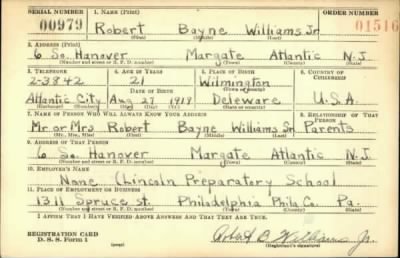 SERIAL NUMBER 1. NAME (Print) ORDER NUMBER
00979 Robert Bayne Williams Jr 01516
(First) (Middle) (Last)
2. ADDRESS (Print)
6 So. Hanover Margate Atlantic N.J.
(Number and street or R. F. D. number) (Town) (County) (State)
3. TELEPHONE 4. AGE IN YEARS 5. PLACE OF BIRTH 6. COUNTRY OF CITIZENSHIP
2-3842 21 Wilmington
DATE OF BIRTH (Town or county)
Atlantic City Aug 27 1919 Deleware U.S.A.
(Exchange) (Number) (Mo.) (Day) (Yr.) (State or country)
7. NAME OF PERSON WHO WILL ALWAYS KNOW YOUR ADDRESS 8. RELATIONSHIP OF THAT PERSON
Mr or Mrs Robert Bayne Williams Sr. Parents
(Mr., Mrs., Miss) (First) (Middle) (Last)
9. ADDRESS OF THAT PERSON
6 So. Hanover Margate Atlantic N.J.
(Number and street or R. F. D. number) (Town) (County) (State)
10. EMPLOYER'S NAME
None (Lincoln Preparatory School
11. PLACE OF EMPLOYMENT OR BUSINESS
1311 Spruce st. Philadelphia Phila Co. Pa.
(Number and street or R. F. D. number) (Town) (County) (State)
I AFFIRM THAT I HAVE VERIFIED ABOVE ANSWERS AND THAT THEY ARE TRUE.
REGISTRATION CARD
D. S. S. Form 1
Robert B Williams Jr.
(Registrant's signature)